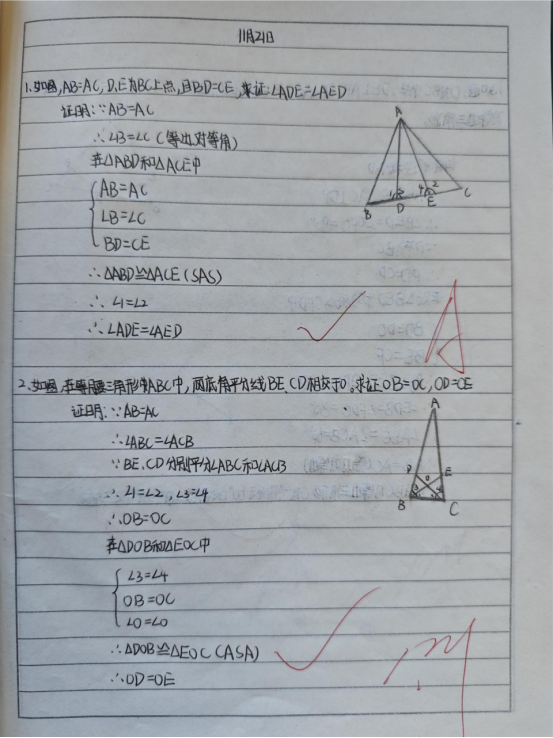 11月21日
1.如图,AB=AC,D.E为BC上点,且BD=CE,求证:∠ADE=∠AED
证明:∵AB=AC
∴∠B=∠C(等边对等角)
在△ABD和△ACE中
AB=AC
∠B=∠C
BD=CE
∴△ABD≌△ACE(SAS)
∴∠1=∠2
∴∠ADE=∠AED
A
B
D
E
C
1
3
4
2
2.如图,在等腰三角形ABC中,两底角平分线BE、CD相交于O。求证OB=OC,OD=OE
证明:∵AB=AC
∴∠ABC=∠ACB
∵BE、CD分别平分∠ABC和∠ACB
∴∠1=∠2,∠3=∠4
∴OB=OC
在△DOB和△EOC中
∠3=∠4
OB=OC
∠O=∠O
∴△DOB≌△EOC(ASA)
∴OD=OE
A
D
E
B
C